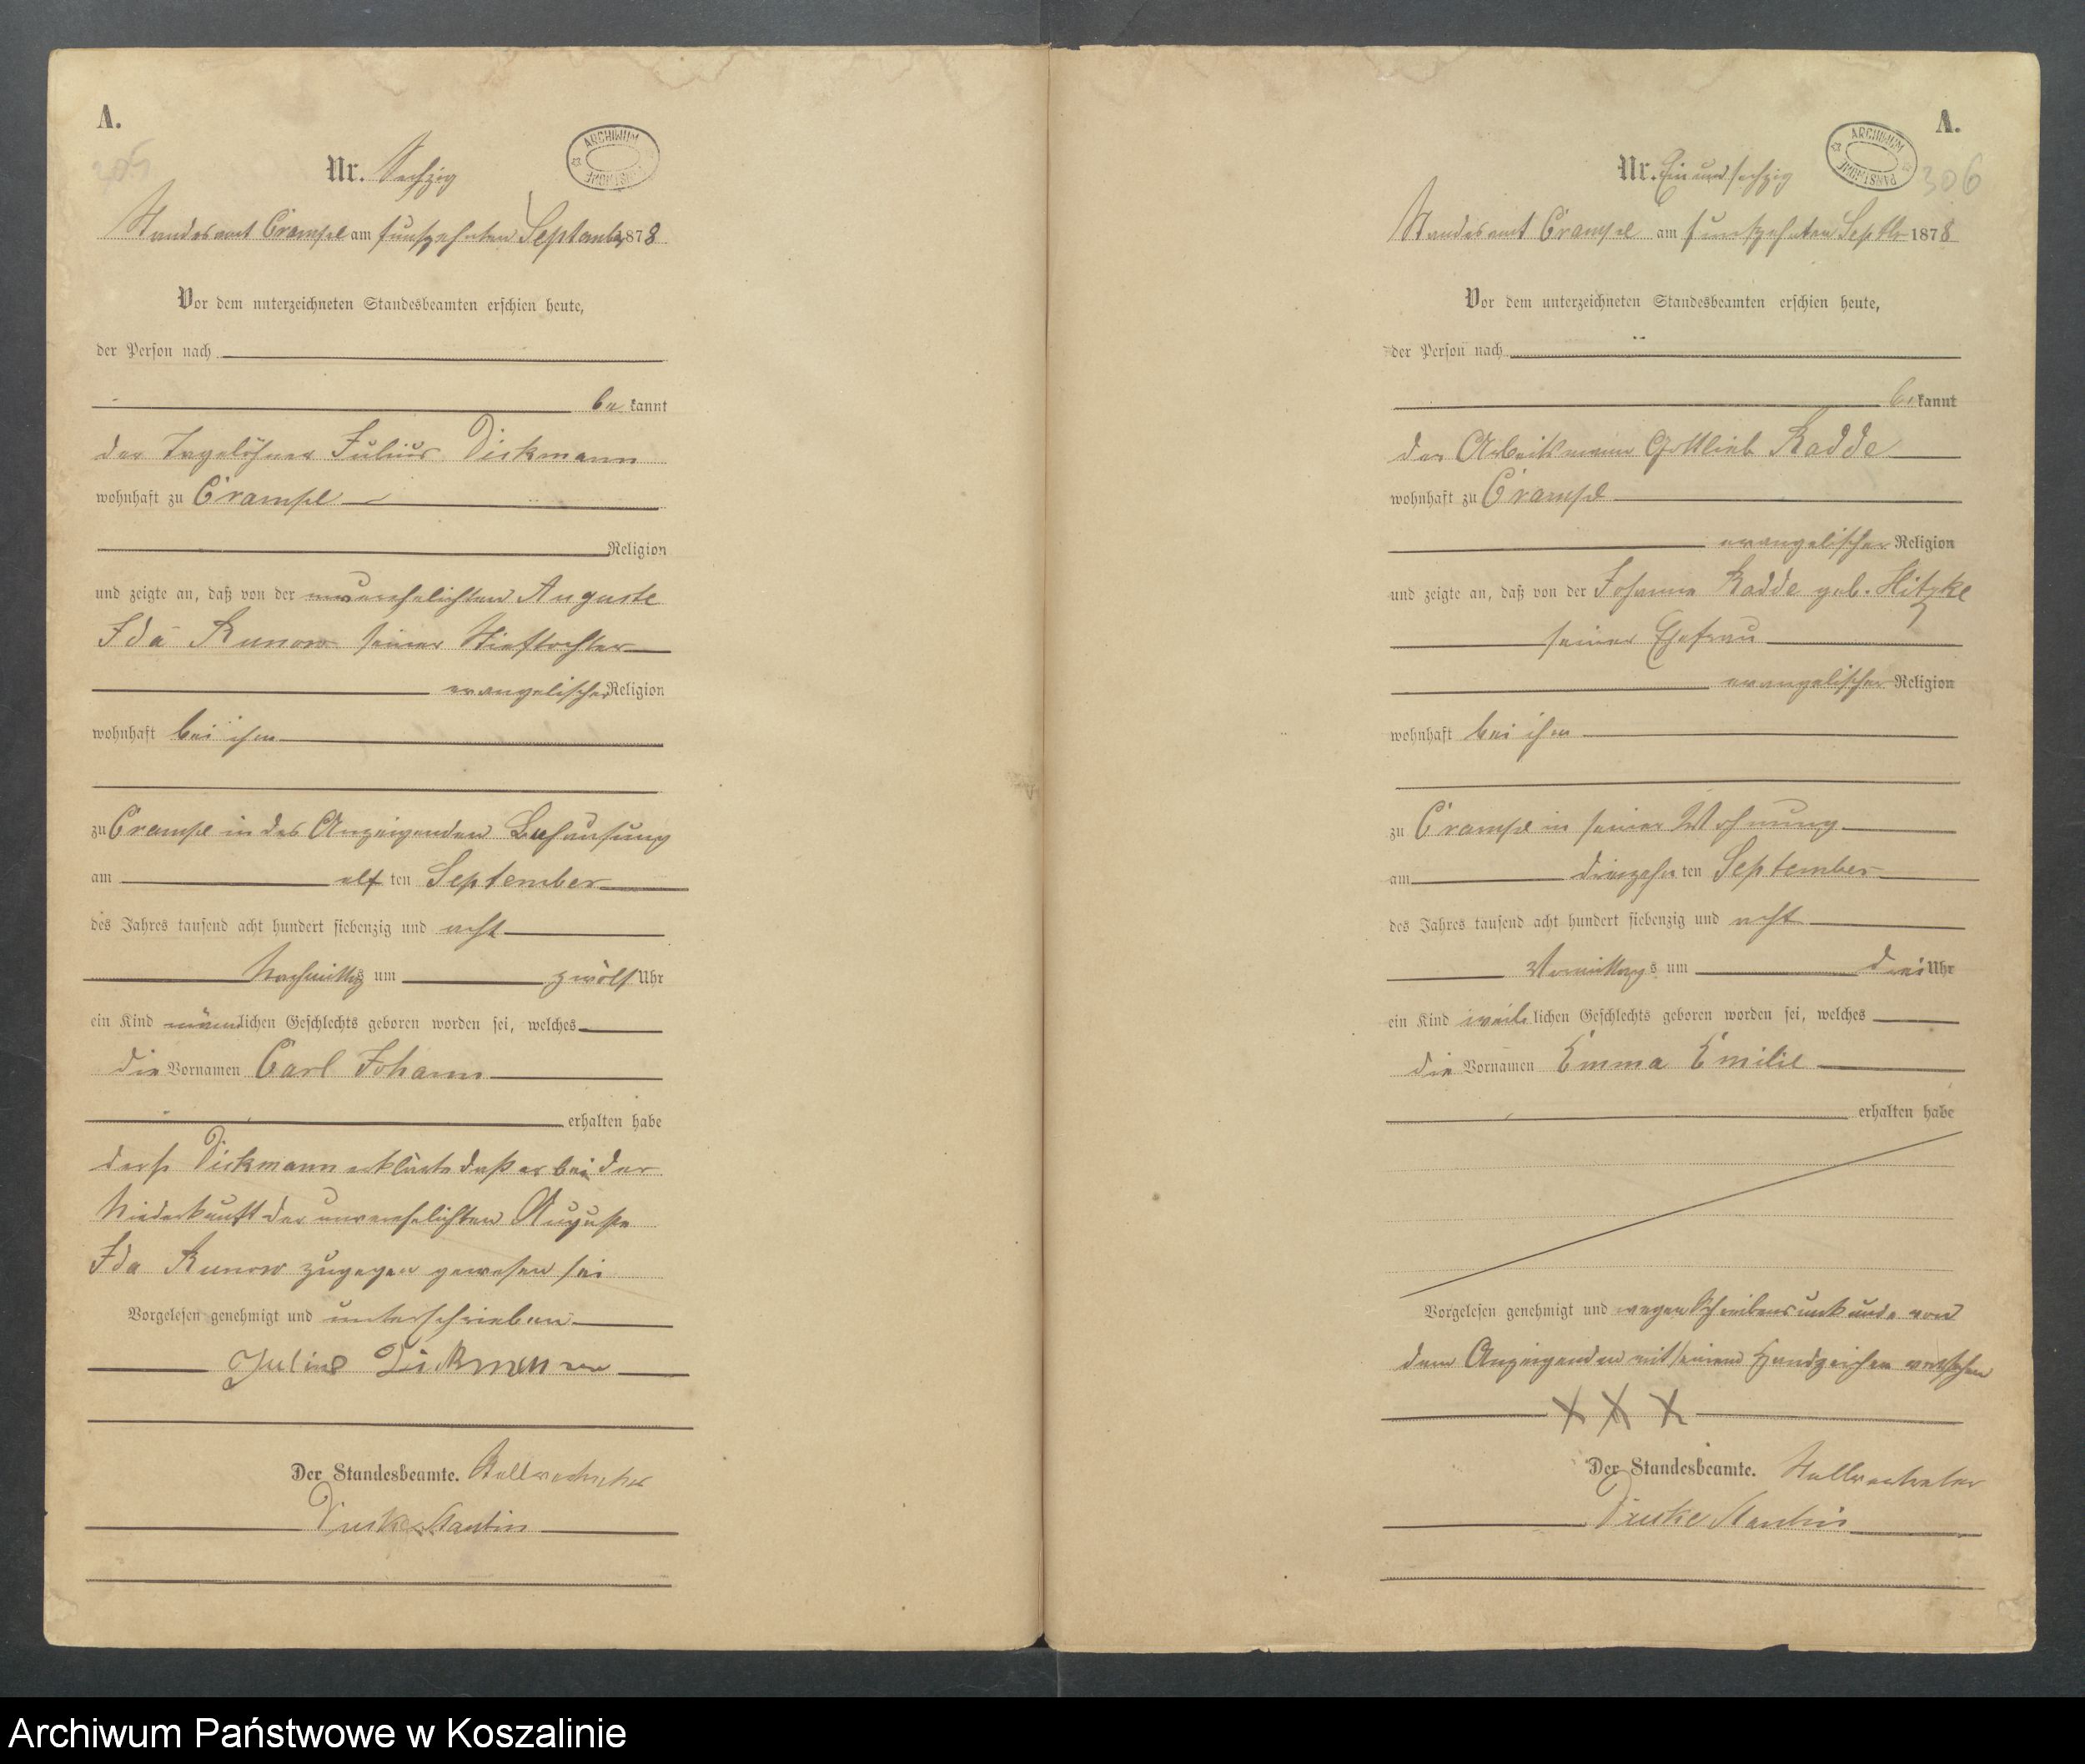 A.
305
Nr. Sechzig
ARCHIWUM PAŃSTWOWE
Standesamt Crampe am fünfzehnten September 1878
Vor dem unterzeichneten Standesbeamten erschien heute,
der Person nach
be kannt
der Tagelöhner Julius Dickmann
wohnhaft zu Crampe
Religion
und zeigte an, daß von der unverehelichten Auguste
Ida Runow seiner Stieftochter
evangelischer Religion
wohnhaft bei ihm
zu Crampe in des Anzeigenden Behausung
am elf ten September
des Jahres tausend acht hundert siebenzig und acht
Nachmittags um zwölf Uhr
ein Kind männlichen Geschlechts geboren worden sei, welches
die Vornamen Carl Johann
erhalten habe
Dickmann erklärte daß er bei der
Niederkunft der unverehelichten Auguste
Ida Runow zugegen gewesen sei
Vorgelesen genehmigt und unterschrieben
Julius Dickmann
Der Standesbeamte. Stellvertreter
Martin
A.
306
Nr. Ein und sechzig
ARCHIWUM PAŃSTWOWE
Standesamt Crampe am fünfzehnten Septbr 1878
Vor dem unterzeichneten Standesbeamten erschien heute,
der Person nach
be kannt
der Arbeitsmann Gottlieb Radde
wohnhaft zu Crampe
evangelischer Religion
und zeigte an, daß von der Johanne Radde geb. Hitzke
seiner Ehefrau
evangelischer Religion
wohnhaft bei ihm
zu Crampe in seiner Wohnung
am dreizehn ten September
des Jahres tausend acht hundert siebenzig und acht
Vormittags um drei Uhr
ein Kind weiblichen Geschlechts geboren worden sei, welches
die Vornamen Emma Emilie
erhalten habe
Vorgelesen genehmigt und wegen Schreibensunkunde von
dem Anzeigenden mit seinem Handzeichen versehen
X X X
Der Standesbeamte. Stellvertreter
Martin
Archiwum Państwowe w Koszalinie